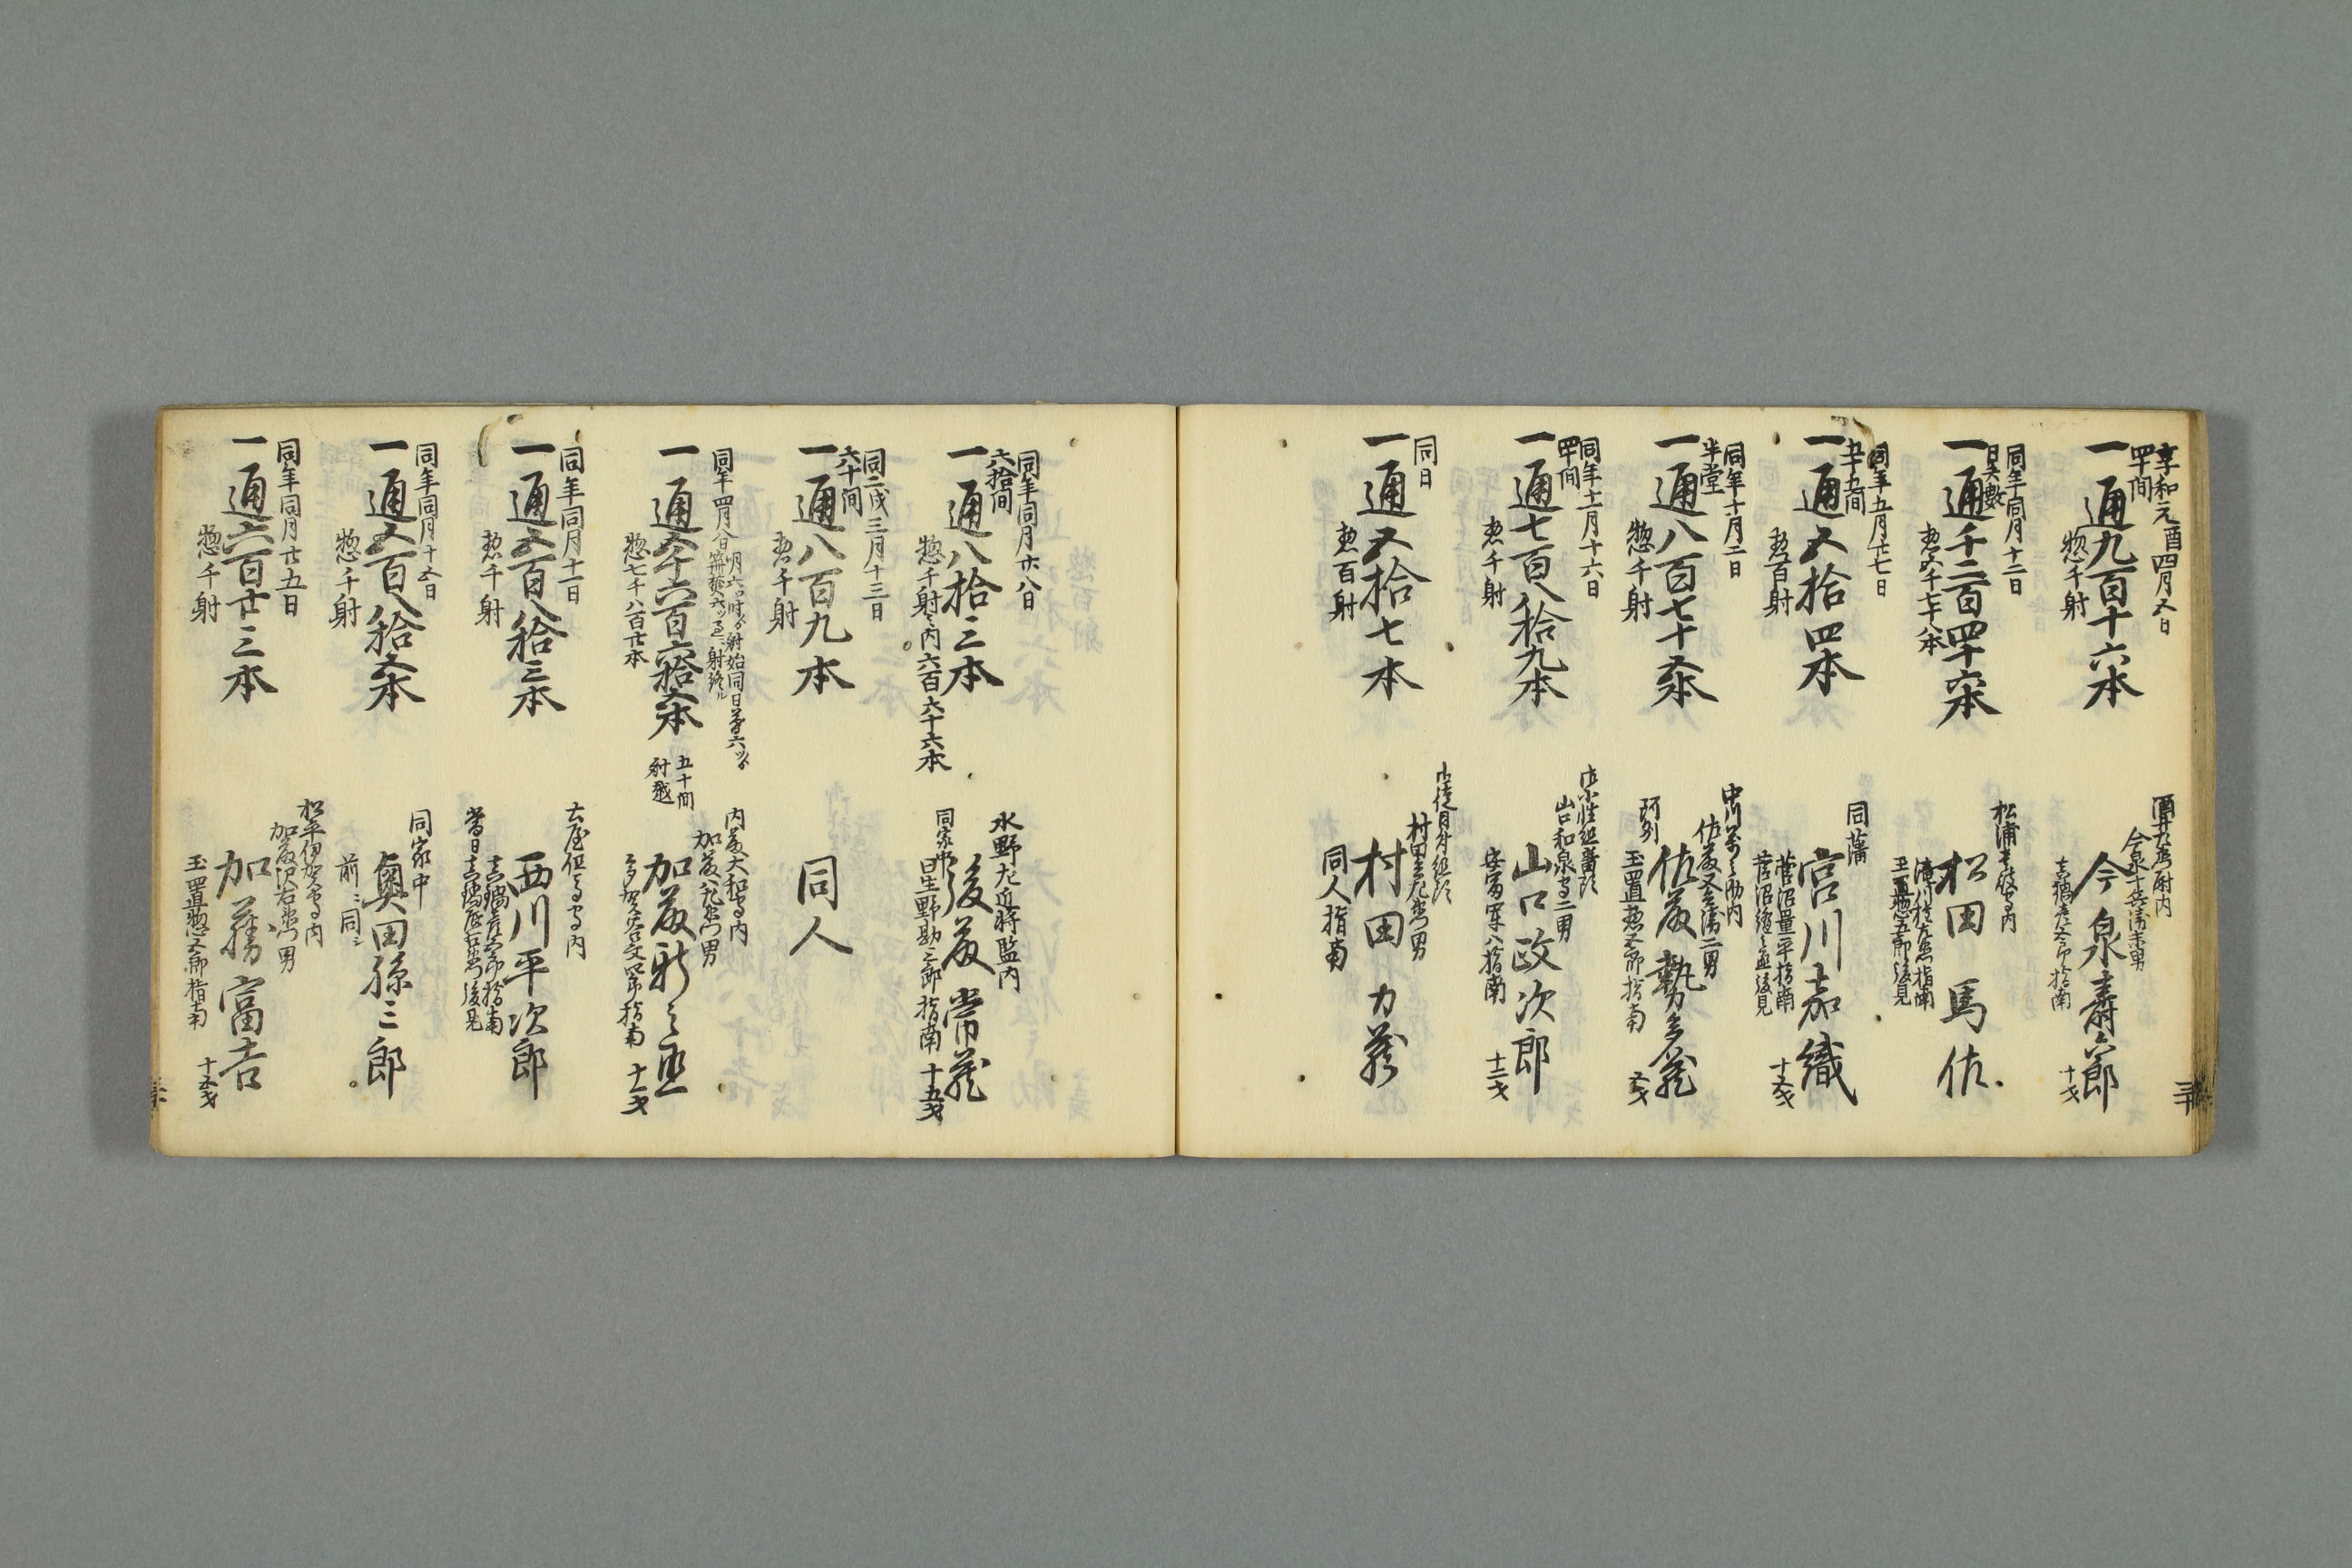 享和元酉四月五日
四十間
一通九百十六本
惣千射
酒井左衛門尉内
今泉
今泉壽六郎
指南
十才
同年同月十二日
日矢数
一通千二百四十六本
松浦壱岐守内
松田馬佐
指南
玉置惣五郎後見
同年五月廿七日
五十五間
一通五拾四本
惣百射
同藩
宮川嘉織
菅沼量平指南
十五才
同年十月二日
半堂
一通八百七十五本
惣千射
中川
佐藤
二男
佐藤勢多蔵
玉置惣五郎指南
同年十一月十六日
四十間
一通七百八拾九本
惣千射
御小性組番頭
山口和泉守二男
山口政次郎
安富軍八指南
十二才
同日
一通五拾七本
惣百射
御徒目付組頭
村田
村田力蔵
同人指南
同年同月廿八日
六拾間
一通八拾三本
惣千射之内六百六十六本
水野左近将監内
後藤常蔵
同家中
星野勘三郎指南
十五才
同二戌三月十三日
六十間
一通八百九本
惣千射
同人
同年四月八日
明六ツ時ゟ射始同日
射終ル
一通五千六百六拾五本
惣七千八百廿本
五十間
射越
内藤大和守内
加藤
加藤新之丞
指南
十一才
同年同月十一日
一通五百八拾三本
惣千射
土屋但馬守内
西川平次郎
指南
後見
同年同月十五日
一通五百八拾五本
惣千射
同家中
奥田孫三郎
前ニ同シ
同年同月廿五日
一通六百廿三本
惣千射
松平伊賀守内
加藤
加藤富吉
玉置惣五郎指南
十五才